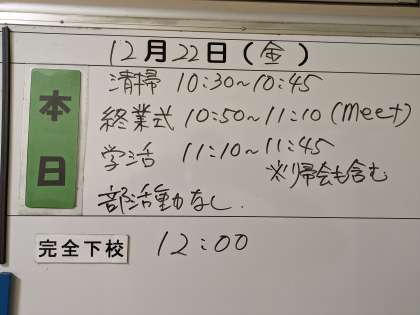 12月22日(金)
本日
清掃 10:30~10:45
終業式 10:50~11:10(Meet)
学活 11:10~11:45
※帰会も含む
部活動なし.
完全下校 12:00